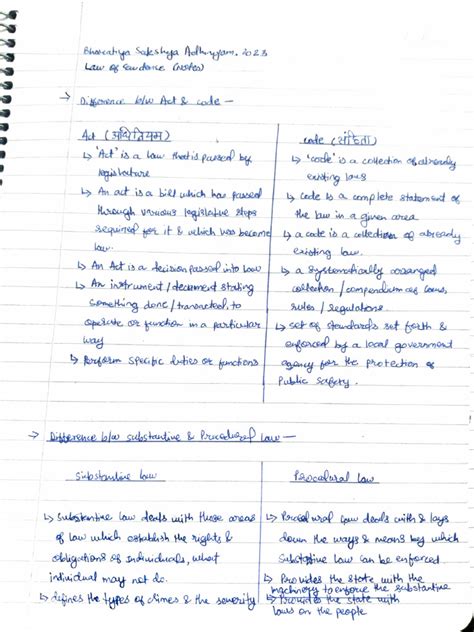 Bharatiya Sakshya Adhiniyam, 2023
Law of Evidence (Notes)
→ Difference b/w Act & code —
Act (अधिनियम)
↳ 'Act' is a law that is passed by
legislature
↳ An act is a bill which has passed
through various legislative steps
required for it & which has become
law.
↳ An Act is a decision passed into law
↳ An instrument / document stating
something done / transacted, to
operate or function in a particular
way
↳ Perform specific duties or functions
code (संहिता)
↳ 'code' is a collection of already
existing laws
↳ code is a complete statement of
the law in a given area
↳ a code is a collection of already
existing law.
↳ a systematically arranged
collection / compendium of laws,
rules / regulations.
↳ set of standards set forth &
enforced by a local government
agency for the protection of
Public Safety.
→ Difference b/w substantive & Procedural law —
Substantive law
↳ Substantive law deals with those areas
of law which establish the rights &
obligations of individuals, what
individual may not do.
↳ defines the types of crimes & the severity
Procedural law
↳ Procedural law deals with & lays
down the ways & means by which
Substantive law can be enforced.
↳ Provides the state with the
machinery to enforce the substantive
↳ Provides the state with
laws on the people